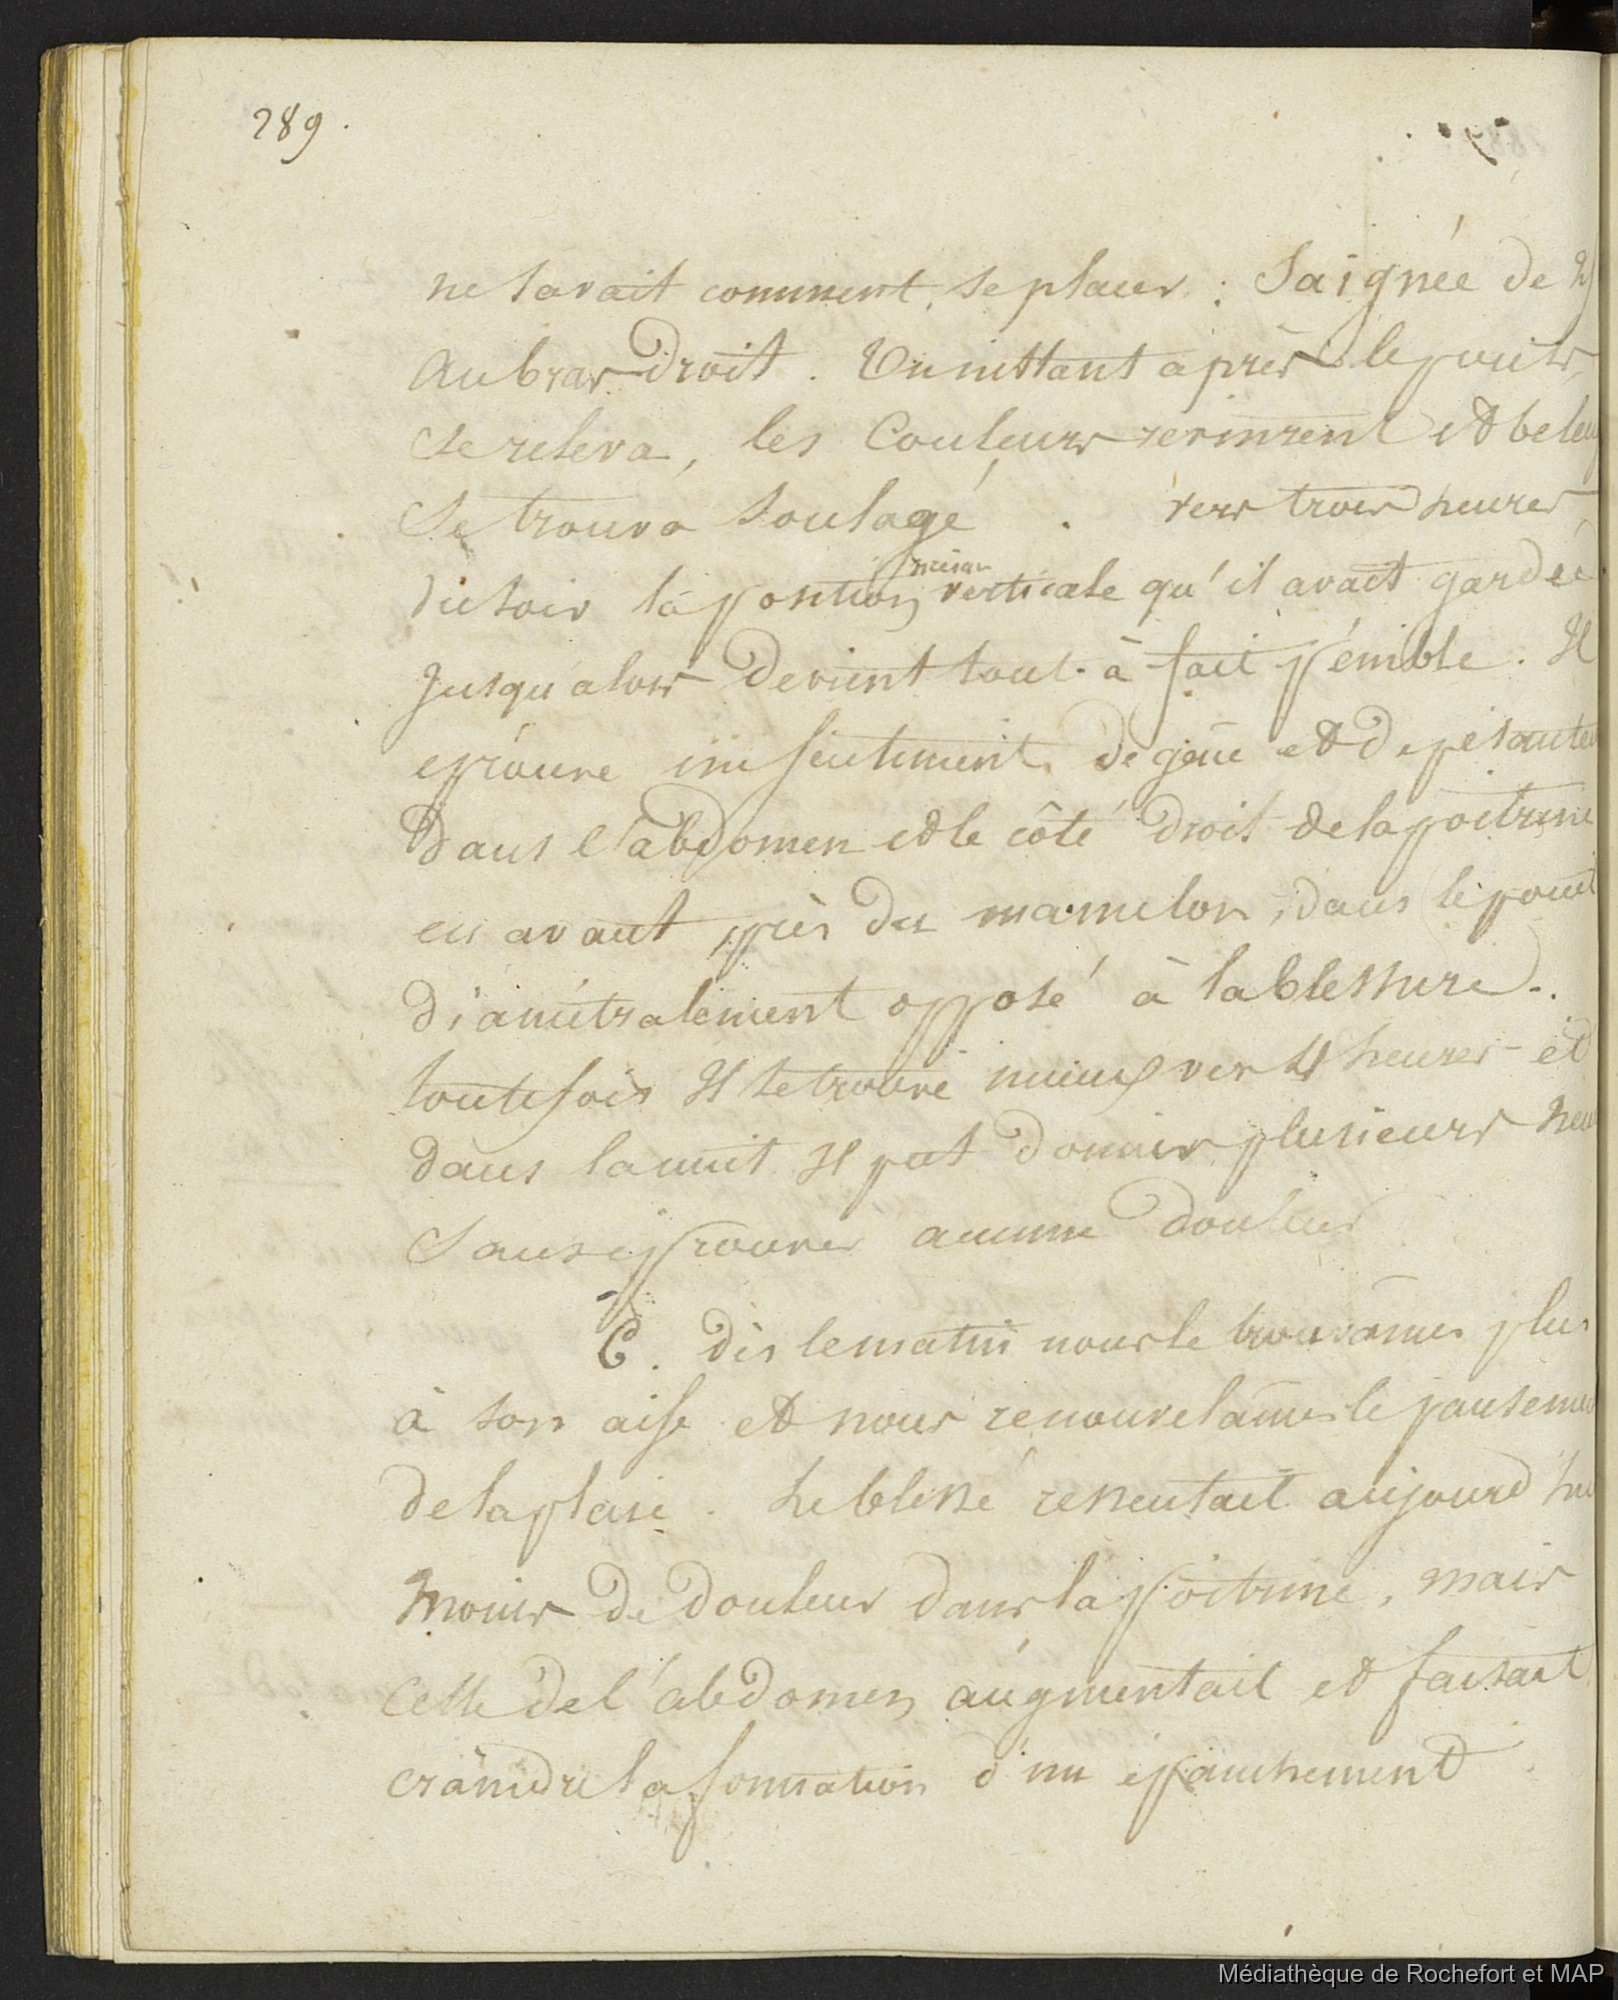 289.
ne savait comment se placer : Saignée de
Au bras droit. Un instant après le pouls
se releva, les Couleurs revinrent et
se trouva soulagé. vers trois heures
du soir la position verticale qu'il avait gardée
Jusqu'alors devient tout à fait pénible. Il
eprouve un sentiment de gêne et de
dans l'abdomen et le côté droit de la poitrine
en avant près du mamelon, dans le point
diamétralement opposé à la blessure.
toutefois Il se trouve mieux vers 4 heures et
dans la nuit Il put dormir plusieurs
sans éprouver aucune douleur
6. dès le matin nous le trouvâmes plus
à son aise et nous renouvelâmes le
de la plaie. Le blessé ressentait aujourd'hui
moins de douleur dans la poitrine, mais
celle de l'abdomen augmentait et faisait
craindre la formation d'un épanchement
Médiathèque de Rochefort et MAP